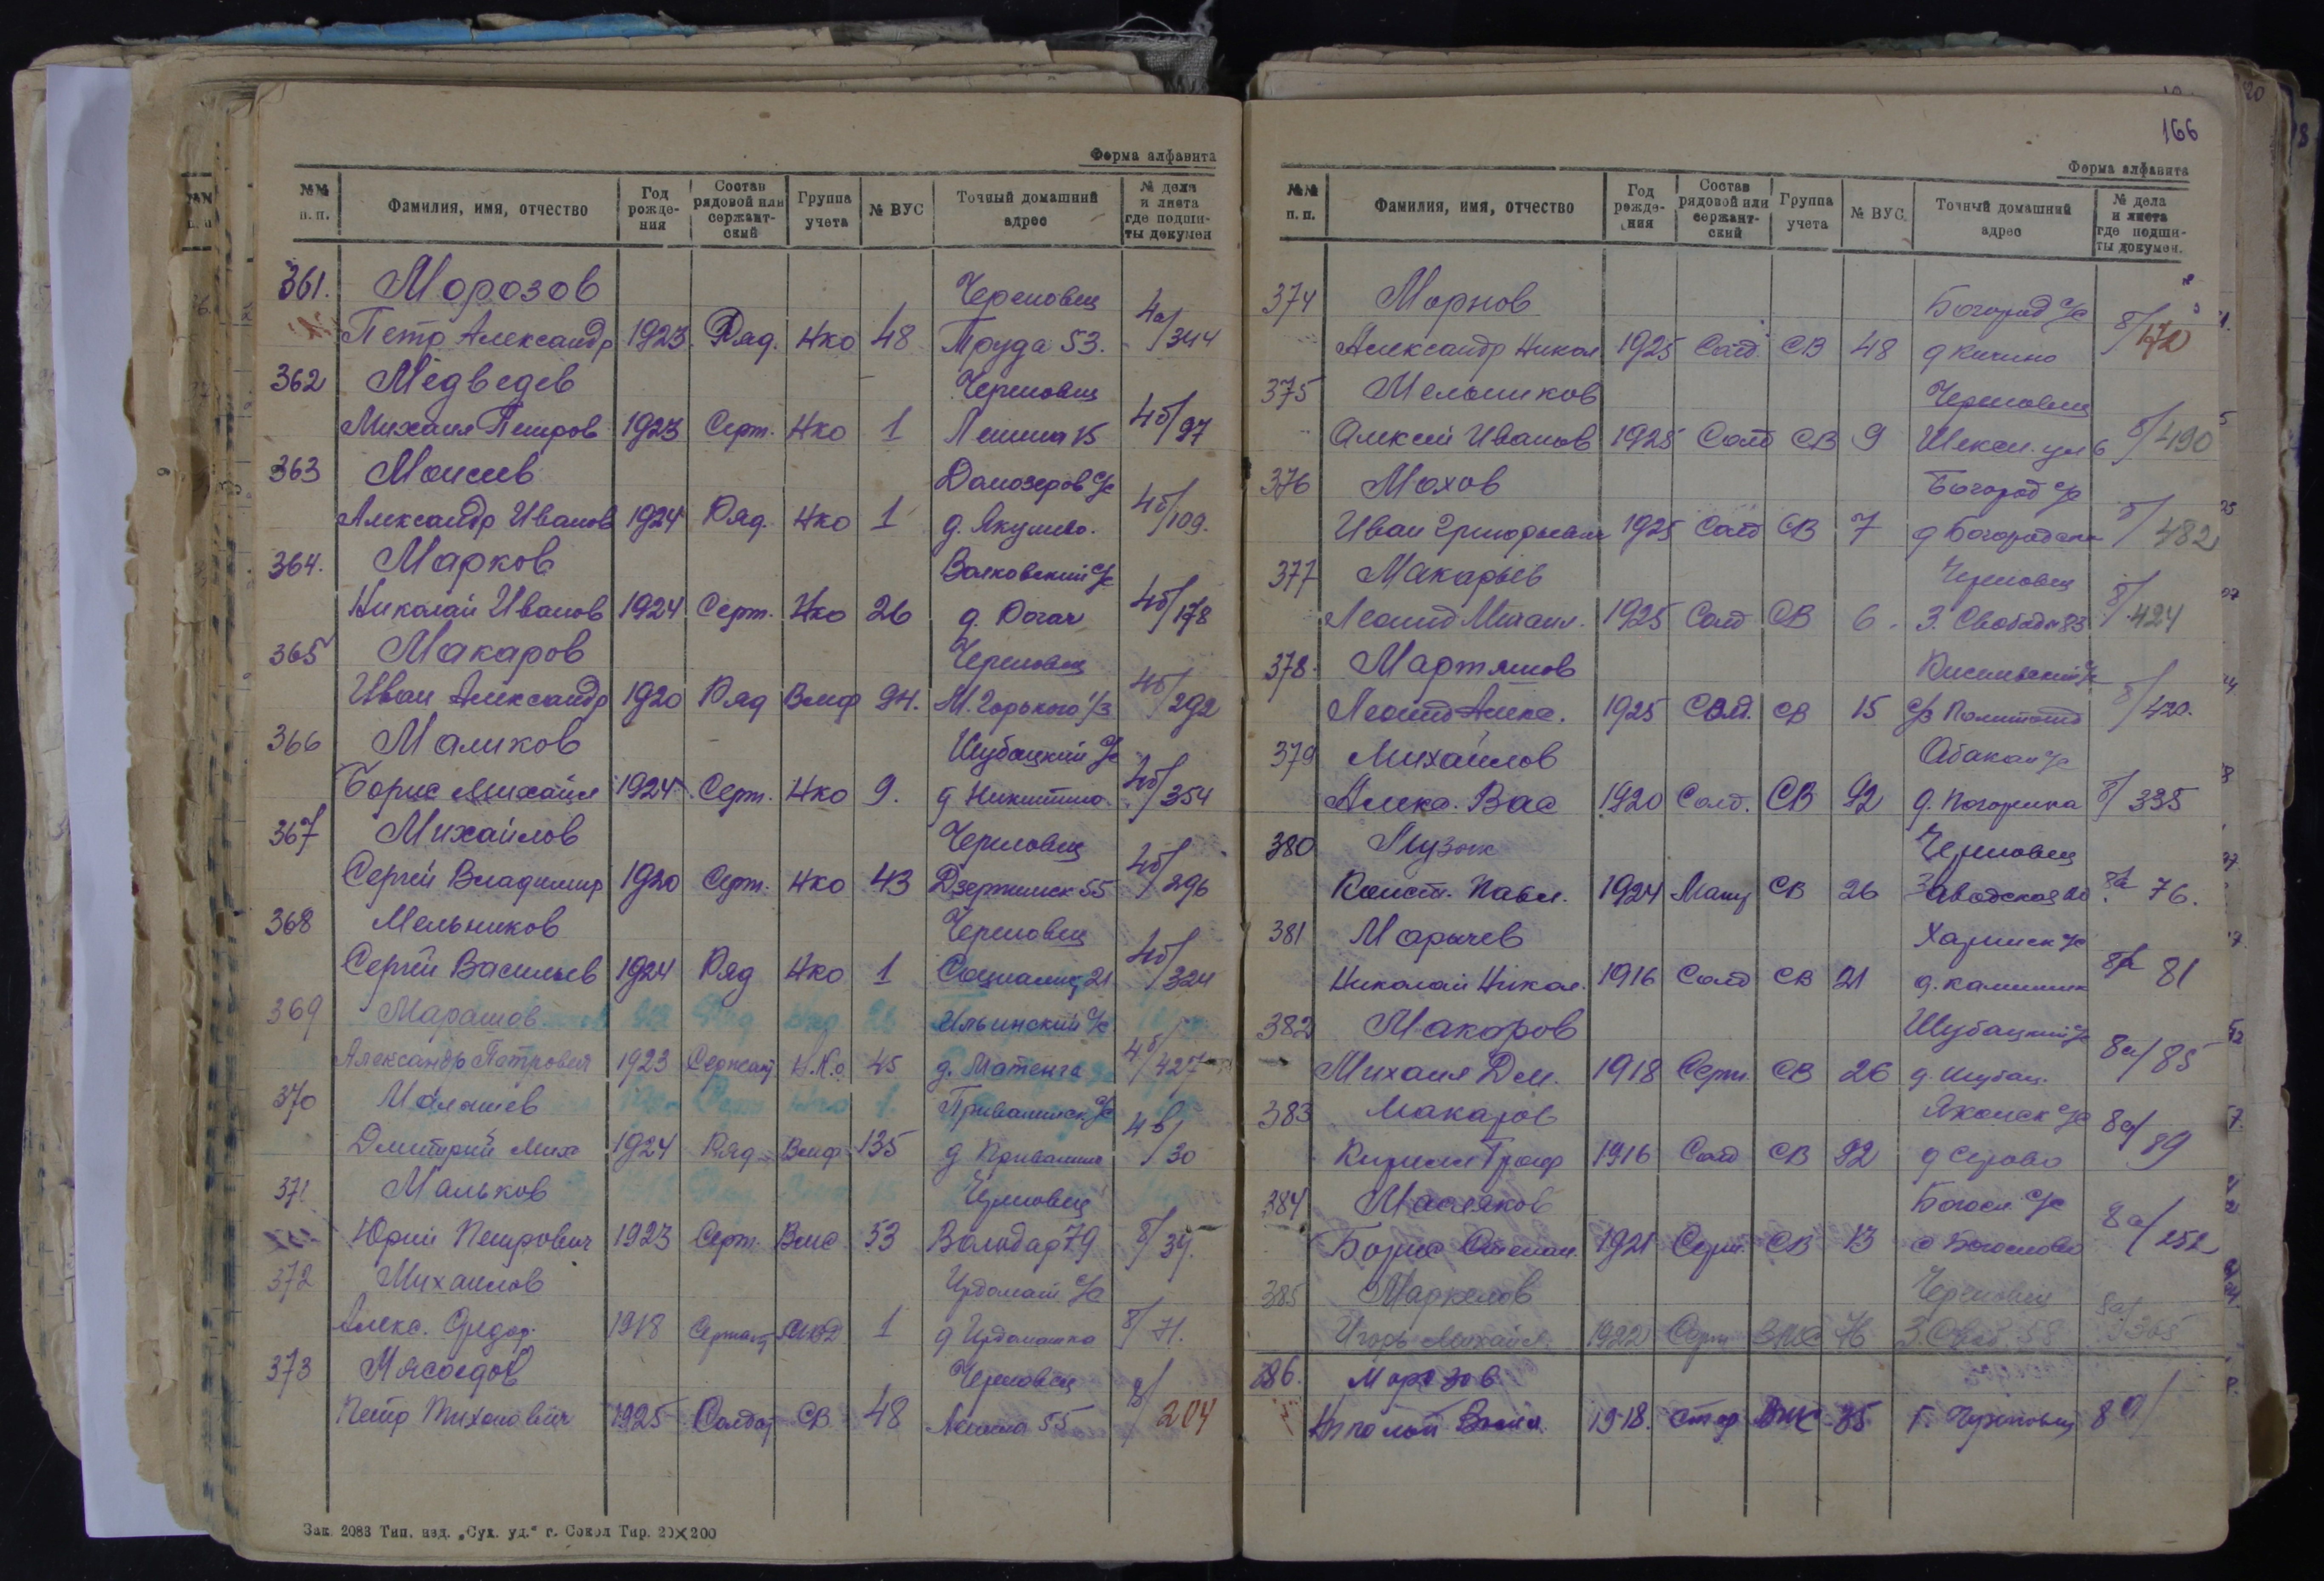 Форма алфавита
№№ п.п. Фамилия, имя, отчество Год рождения Состав рядовой или сержантский Группа учета № ВУС Точный домашний адрес № дела и листа где подшиты докумен
361. Морозов Череповец 4а/344
Петр Александр 1923 Ряд. Нко 48 Труда 53.
362 Медведев Череповец 4б/97
Михаил Петров 1923 Серж. Нко 1 Ленина 15
363 Моисеев Домозеров с/с 4б/109.
Александр Иванов 1924 Ряд. Нко 1 д. Якунино.
364. Марков с/с 4б/178
Николай Иванов 1924 Серж. Нко 26 д. Рогач
365 Макаров Череповец 4б/292
Иван Александр 1920 Ряд Вмф 94. М. Горького 1/3
366 Маликов Шубацкий с/с 4б/354
Борис Михайл 1924 Серж. Нко 9. д Никитино
367 Михайлов Череповец 4б/296
Сергей Владимир 1920 Серж. Нко 43 Дзержинск 55
368 Мельников Череповец 4б/324
Сергей Васильев 1924 Ряд Нко 1 Социалис 21
369 Марашов Ильинский с/с 4б/427
Александр Петрович 1923 Сержант Н.К.о 45 д. Матенга
370 Малашев с/с 4в/30
Дмитрий Мих 1924 Ряд Вмф 135 д
371 Мальков Череповец 8/39.
Юрий Петрович 1923 Серж. Вмс 53 Володар 79
372 Михаилов Ирдомат с/с 8/71.
Алекс. Фидор. 1918 Сержант 1 д Ирдоматка
373 Мясоедов Череповец 8/204
Петр Тихонович 1925 Солдат СВ 48 Ленина 55
Зак. 2083 Тип. изд. „Сух. уд.“ г. Сокол Тир. 20×200
166
Форма алфавита
№№ п.п. Фамилия, имя, отчество Год рождения Состав рядовой или сержантский Группа учета № ВУС. Точный домашний адрес № дела и листа где подшиты докумен.
374 Марков Богород с/с 8/472
Александр Никол 1925 Солд. СВ 48 д Кичино
375 Мельников Череповец 8/490
Алексей Иванов 1925 Солд СВ 9 Шексн. ул 6
376 Мохов Богород с/с 8/482
Иван Григорьевич 1925 Солд СВ 7 д Богородская
377 Макарьев Череповец 8/424
Леонид Михаил. 1925 Солд СВ 6 З. Свободы 83
378. Мартянов с/с 8/420.
Леонид Алекс. 1925 Солд. СВ 15
379 Михайлов Абакан с/с 8/335
Алекс. Вас 1920 Солд. СВ 92 д. Погорелка
380 Музык Череповец 8а 76.
Конст. Павл. 1924 СВ 26 Заводская
381 Марычев с/с 8а 81
Николай Никол. 1916 Солд СВ 21 д.
382 Макаров Шубацкий с/с 8а/85
Михаил Дм. 1918 Серж. СВ 26 д. Шубац.
383 Макаров с/с 8а/89
Кирилл Троф 1916 Солд СВ 92 д Серово
384 Масляков Богосл. с/с 8а/252
Борис Степан. 1921 Серж. СВ 13 с Богослово
385 Маркелов Череповец 8а/365
Игорь Михайл. 1922 Серж ВМС 76 З. Своб. 58
386. Морозов
Николай 1918. ВМС 35 г. Череповец 8а/